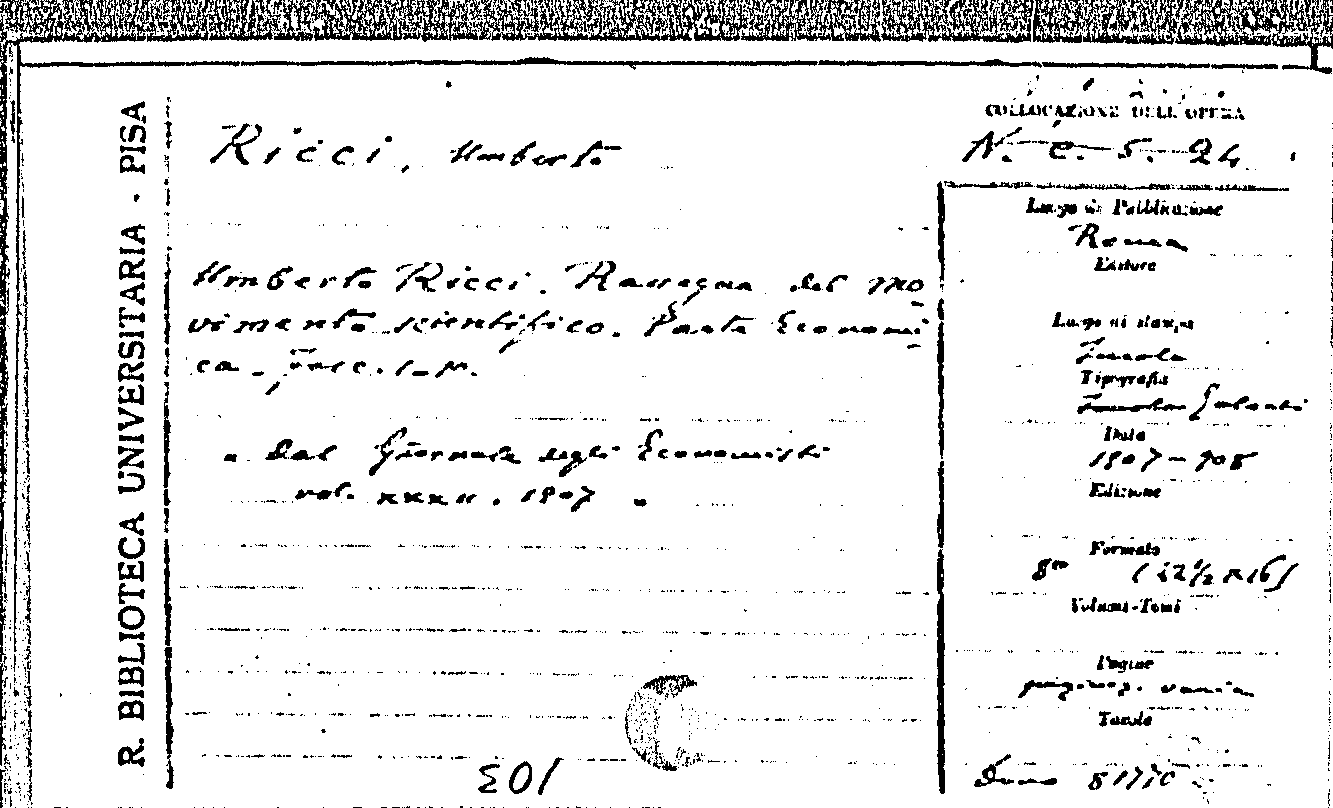 R. BIBLIOTECA UNIVERSITARIA - PISA
Ricci, Umberto
Umberto Ricci. Rassegna del mo-
vimento scientifico. Parte Economi-
ca - Fasc. I-IV.
" Dal Giornale degli Economisti
vol. XXXII. 1907 "
103
COLLOCAZIONE DELL'OPERA
N. C. 5. 24
Luogo di Pubblicazione
Roma
Editore
Luogo di stampa
Imola
Tipografia
Galeati
Data
1907-908
Edizione
Formato
8vo (22½ x 16)
Volumi-Tomi
Pagine
varia
Tavole
Dono 81770